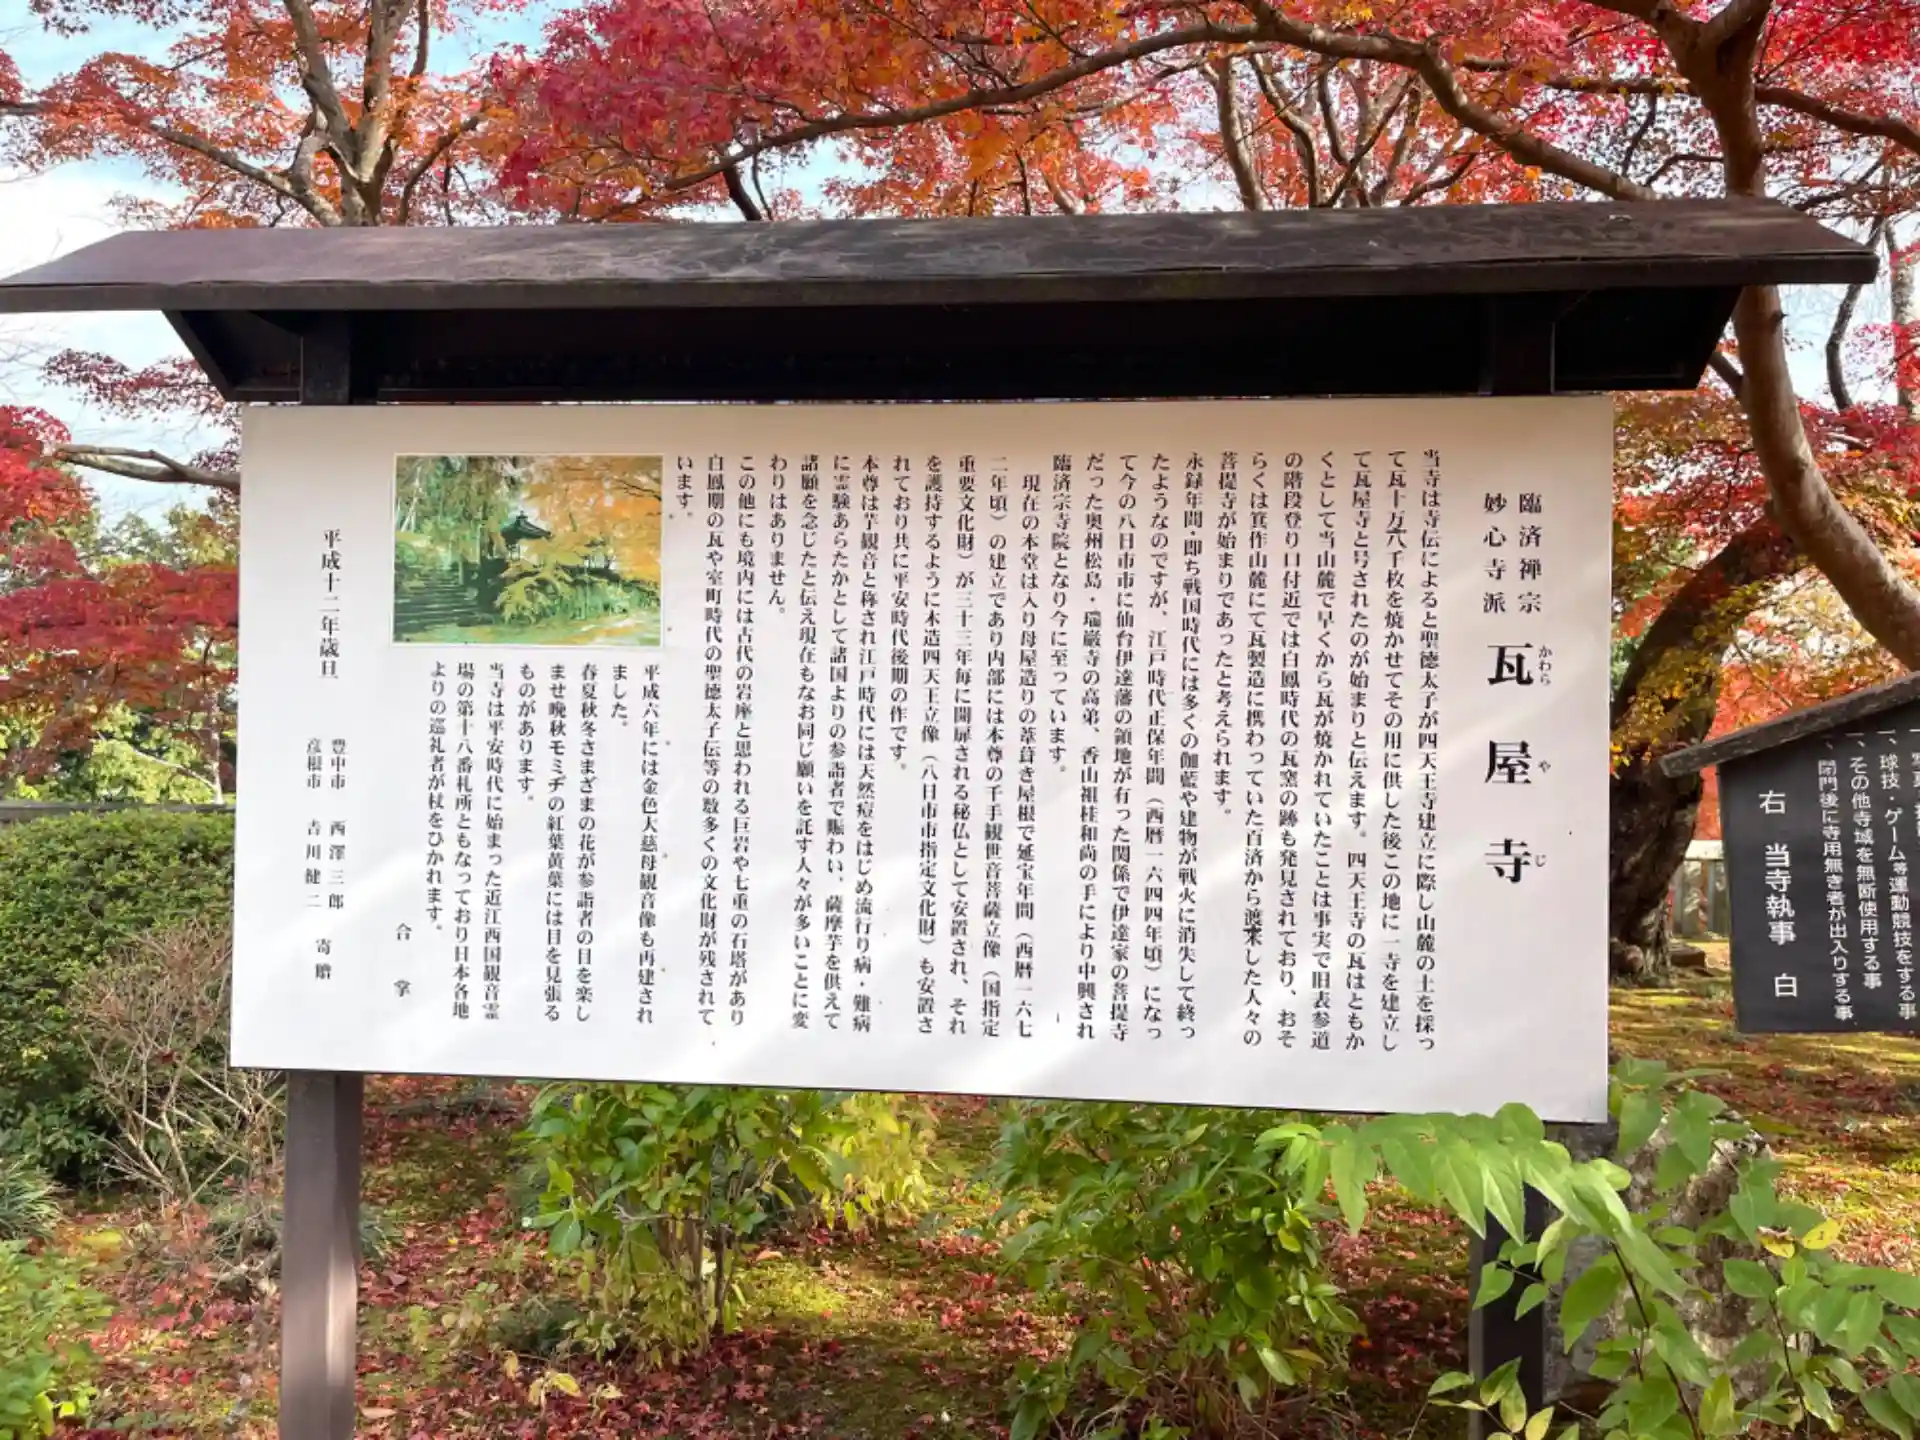 臨済禅宗
妙心寺派
瓦屋寺
かわら や じ
当寺は寺伝によると聖徳太子が四天王寺建立に際し山麓の土を採っ
て瓦十万六千枚を焼かせてその用に供した後この地に一寺を建立し
て瓦屋寺と号されたのが始まりと伝えます。四天王寺の瓦はともか
くとして当山麓で早くから瓦が焼かれていたことは事実で旧表参道
の階段登り口付近では白鳳時代の瓦窯の跡も発見されており、おそ
らくは箕作山麓にて瓦製造に携わっていた百済から渡来した人々の
菩提寺が始まりであったと考えられます。
永録年間・即ち戦国時代には多くの伽藍や建物が戦火に消失して終っ
たようなのですが、江戸時代正保年間（西暦一六四四年頃）になっ
て今の八日市市に仙台伊達藩の領地が有った関係で伊達家の菩提寺
だった奥州松島・瑞巌寺の高弟、香山祖桂和尚の手により中興され
臨済宗寺院となり今に至っています。
現在の本堂は入り母屋造りの葦葺き屋根で延宝年間（西暦一六七
二年頃）の建立であり内部には本尊の千手観世音菩薩立像（国指定
重要文化財）が三十三年毎に開扉される秘仏として安置され、それ
を護持するように木造四天王立像（八日市市指定文化財）も安置さ
れており共に平安時代後期の作です。
本尊は芋観音と称され江戸時代には天然痘をはじめ流行り病・難病
に霊験あらたかとして諸国よりの参詣者で賑わい、薩摩芋を供えて
諸願を念じたと伝え現在もなお同じ願いを託す人々が多いことに変
わりはありません。
この他にも境内には古代の岩座と思われる巨岩や七重の石塔があり
白鳳期の瓦や室町時代の聖徳太子伝等の数多くの文化財が残されて
います。
平成六年には金色大慈母観音像も再建され
ました。
春夏秋冬さまざまの花が参詣者の目を楽し
ませ晩秋モミヂの紅葉黄葉には目を見張る
ものがあります。
当寺は平安時代に始まった近江西国観音霊
場の第十八番札所ともなっており日本各地
よりの巡礼者が杖をひかれます。
合掌
平成十二年歳旦
豊中市 西澤三郎
彦根市 吉川健二 寄贈
一、球技・ゲーム等運動競技をする事
一、その他寺域を無断使用する事
一、閉門後に寺用無き者が出入りする事
右 当寺執事 白